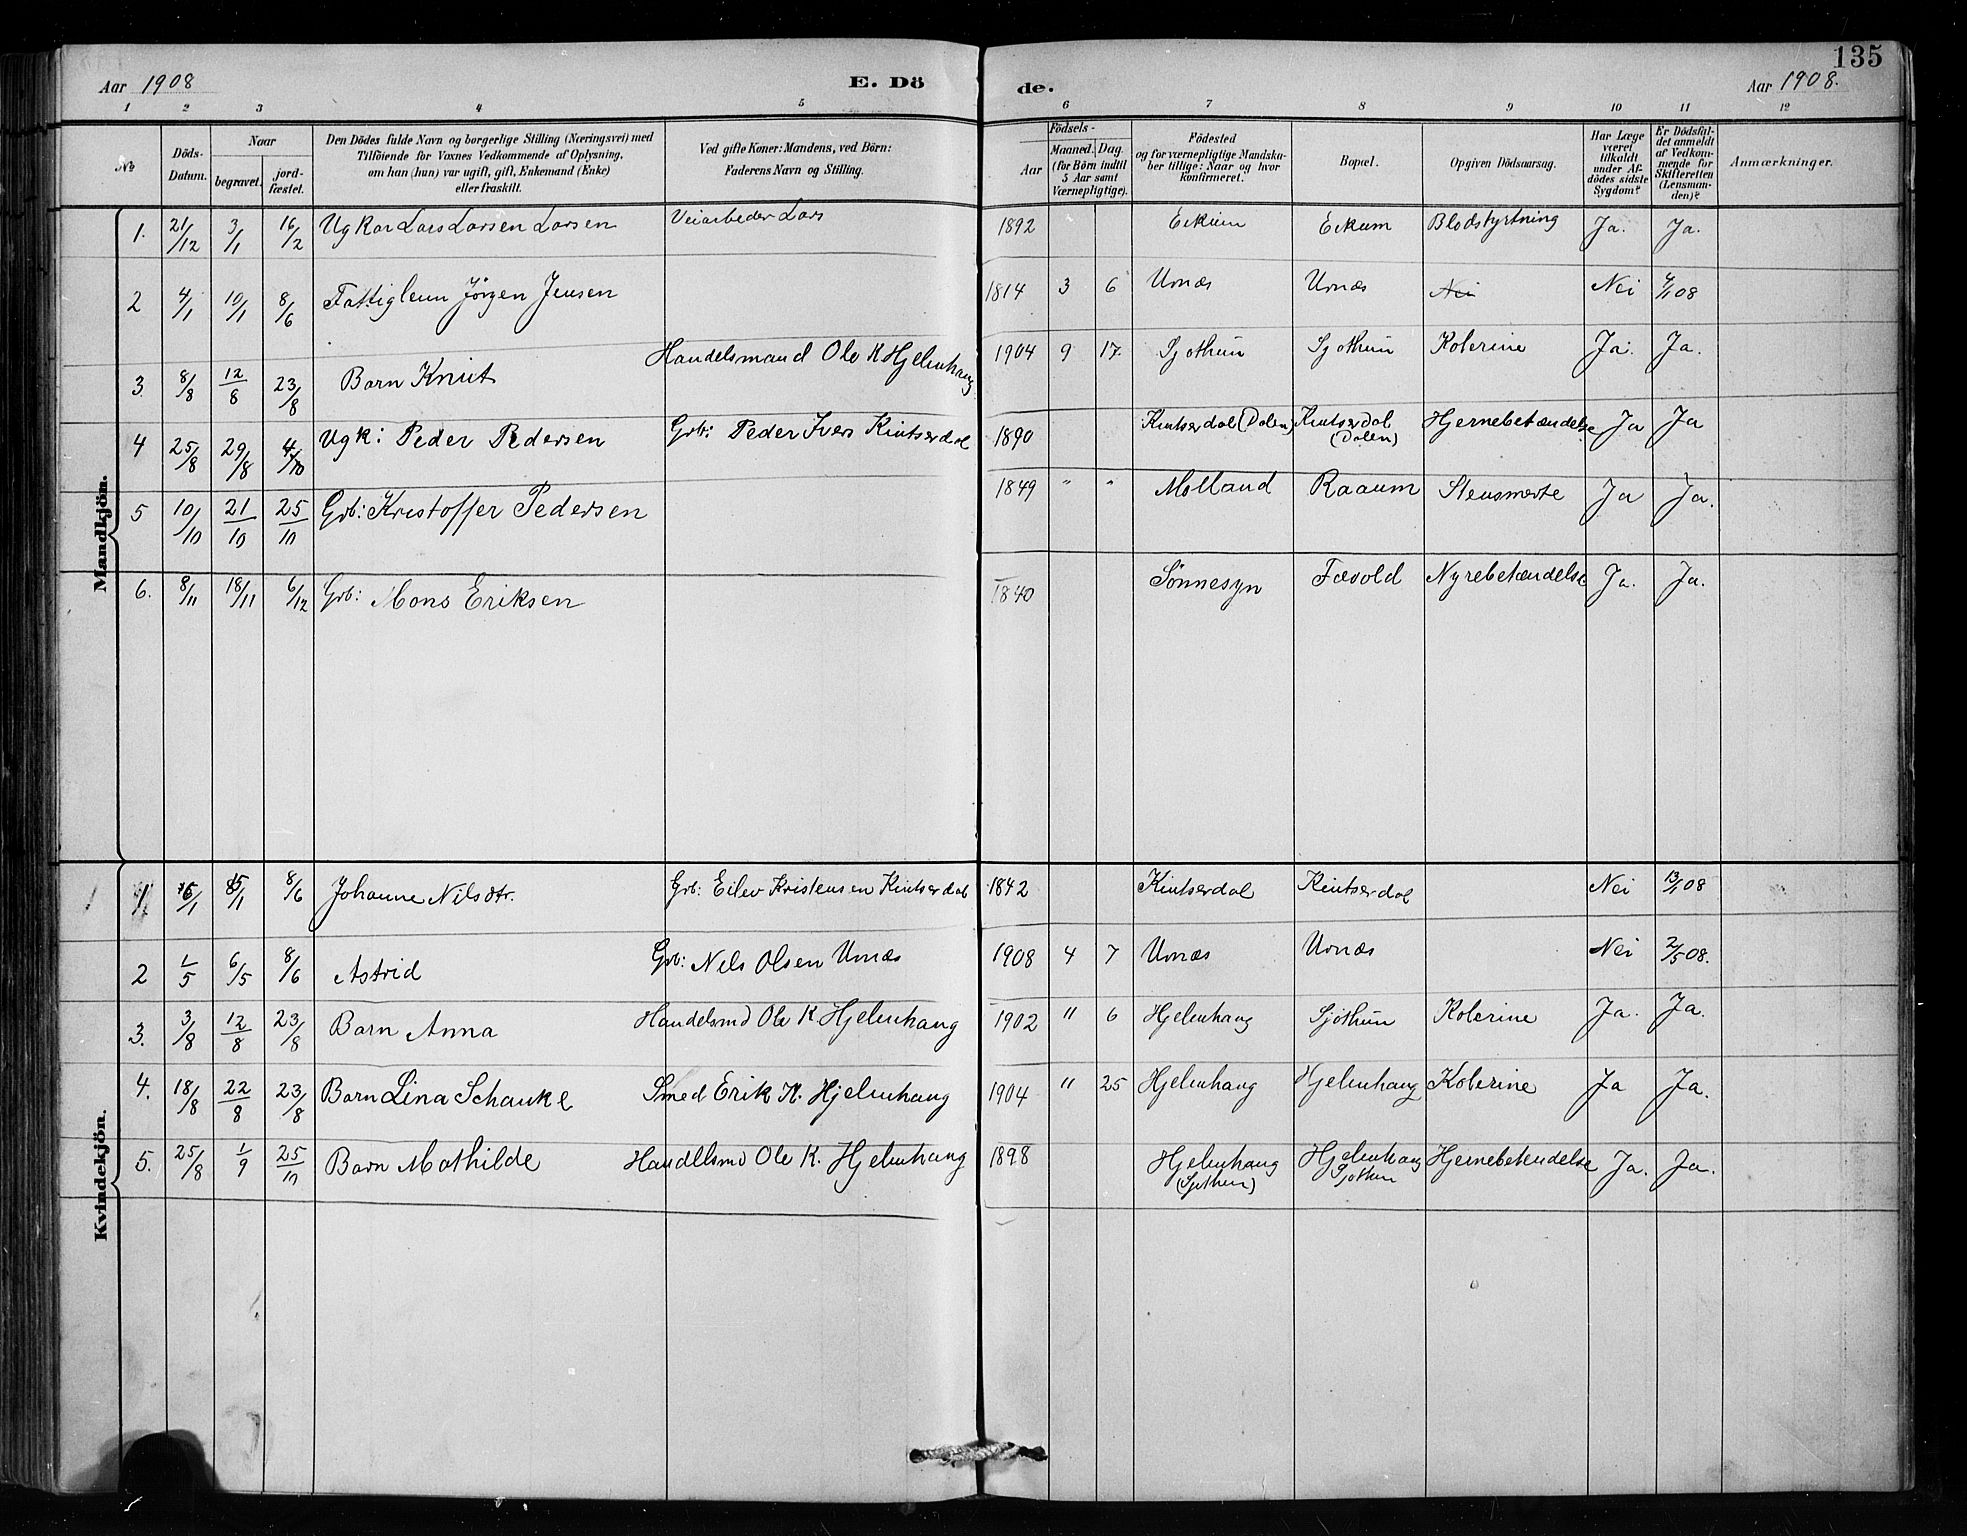 135
Aar 1908 E. Dö de. Aar 1908.
1 2 3 4 5 6 7 8 9 10 11 12
№
Döds-Datum.
Naar
begravet.
jord-fæstet.
Den Dödes fulde Navn og borgerlige Stilling (Næringsvei) med
Tilföiende for Voxnes Vedkommende af Oplysning,
om han (hun) var ugift, gift, Enkemand (Enke)
eller fraskilt.
Ved gifte Koner: Mandens, ved Börn:
Faderens Navn og Stilling.
Födsels-
Aar
Maaned. Dag.
(for Börn indtil
5 Aar samt
Værnepligtige).
Födested
og for værnepligtige Mandska-
ber tillige: Naar og hvor
konfirmeret.
Bopæl.
Opgiven Dödsaarsag.
Har Læge
været
tilkaldt
under Af-
dödes sidste
Sygdom?
Er Dödsfal-
det anmeldt
af Vedkom-
mende for
Skifteretten
(Lensman-
den)?
Anmærkninger.
Mandkjön.
1. 21/12 3/1 16/2 Ug Kar Lars Larsen Larsen Veiarbeder Lars 1892 Eikum Eikum Blodstyrtning Ja. Ja.
2 4/1 10/1 8/6 Fattiglem Jörgen Jensen 1814 3 6 Urnæs Urnæs Nei Nei 4/1 08
3. 8/8 12/8 23/8 Barn Knut Handelsmand Ole K Hjelmhaug 1904 9 17. Sjøthun Sjøthun Kolerine Ja. Ja.
4 25/8 29/8 4/10 Ugk: Peder Pedersen Grb: Peder Ivers Kintserdal 1890 Kintserdal (Dalen) Kintserdal (Dalen) Hjernebetændelse Ja Ja
5 10/10 21/10 25/10 Grb: Kristoffer Pedersen 1849 " " Molland Raaum Stensmerte Ja Ja.
6. 8/11 18/11 6/12 Grb: Mons Eriksen 1840 Sønnesyn Fævold Nyrebetændelse Ja. Ja.
Kvindekjön.
1 8/6 Johanne Nilsdtr. Grb: Eilev Kristensen Kintserdal 1842 Kintserdal Kintserdal Nei 13/1 08
2 1/5 6/5 8/6 Astrid Grb: Nils Olsen Urnæs 1908 4 7 Urnæs Urnæs Nei 2/5 08.
3. 3/8 12/8 23/8 Barn Anna Handelsmd Ole K. Hjelmhaug 1902 " 6 Hjelmhaug Sjøthun Kolerine Ja. Ja.
4. 18/8 22/8 23/8 Barn Lina Schanke Smed Erik K. Hjelmhaug 1904 " 25 Hjelmhaug Hjelmhaug Kolerine Ja Ja.
5. 25/8 1/9 25/10 Barn Mathilde Handelsmd Ole K. Hjelmhaug 1898 Hjelmhaug (Sjøthun) Hjelmhaug Sjøthun Hjernebetendelse Ja. Ja.